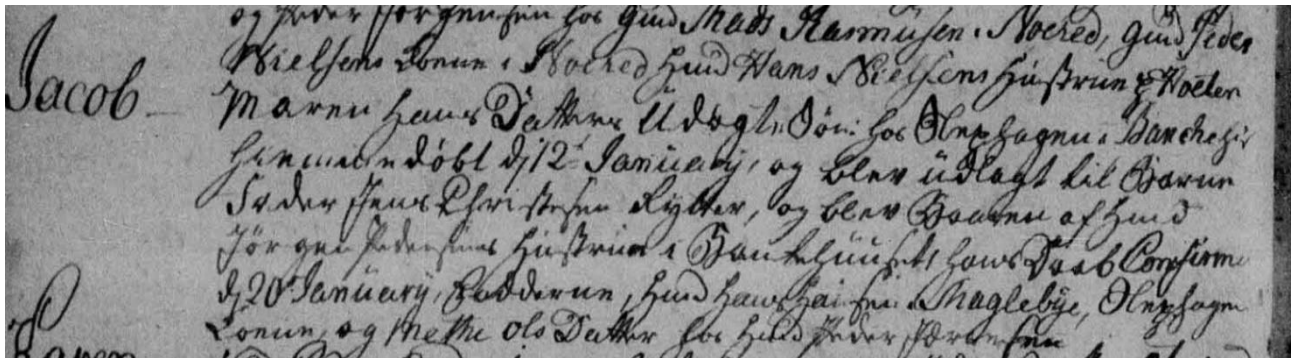 og Peder Jørgensen hos Hmd Mads Rasmüsen i Noered, Hmd Peder
Nielsens Koene i Noered Hmd Hans Nielsens Hüstrüe
Jacob
Maren Hans Datters Udægte Søn hos Olephagen i Banchehü
hiemmedøbt dj 12te Januarij, og blev üdlagt til Barne
Fader Jens Christesen Rytter, og blev Baaren af Hmd
Jørgen Pedersens Hüstrüe i Bankehüuset hans Daab Confirme
dj 20 Januarij, Fadderne, Hmd Hans Hansen i Maglebye, Olephagen
Koene, og Mette Ols Datter hos Hmd Peder
Karen